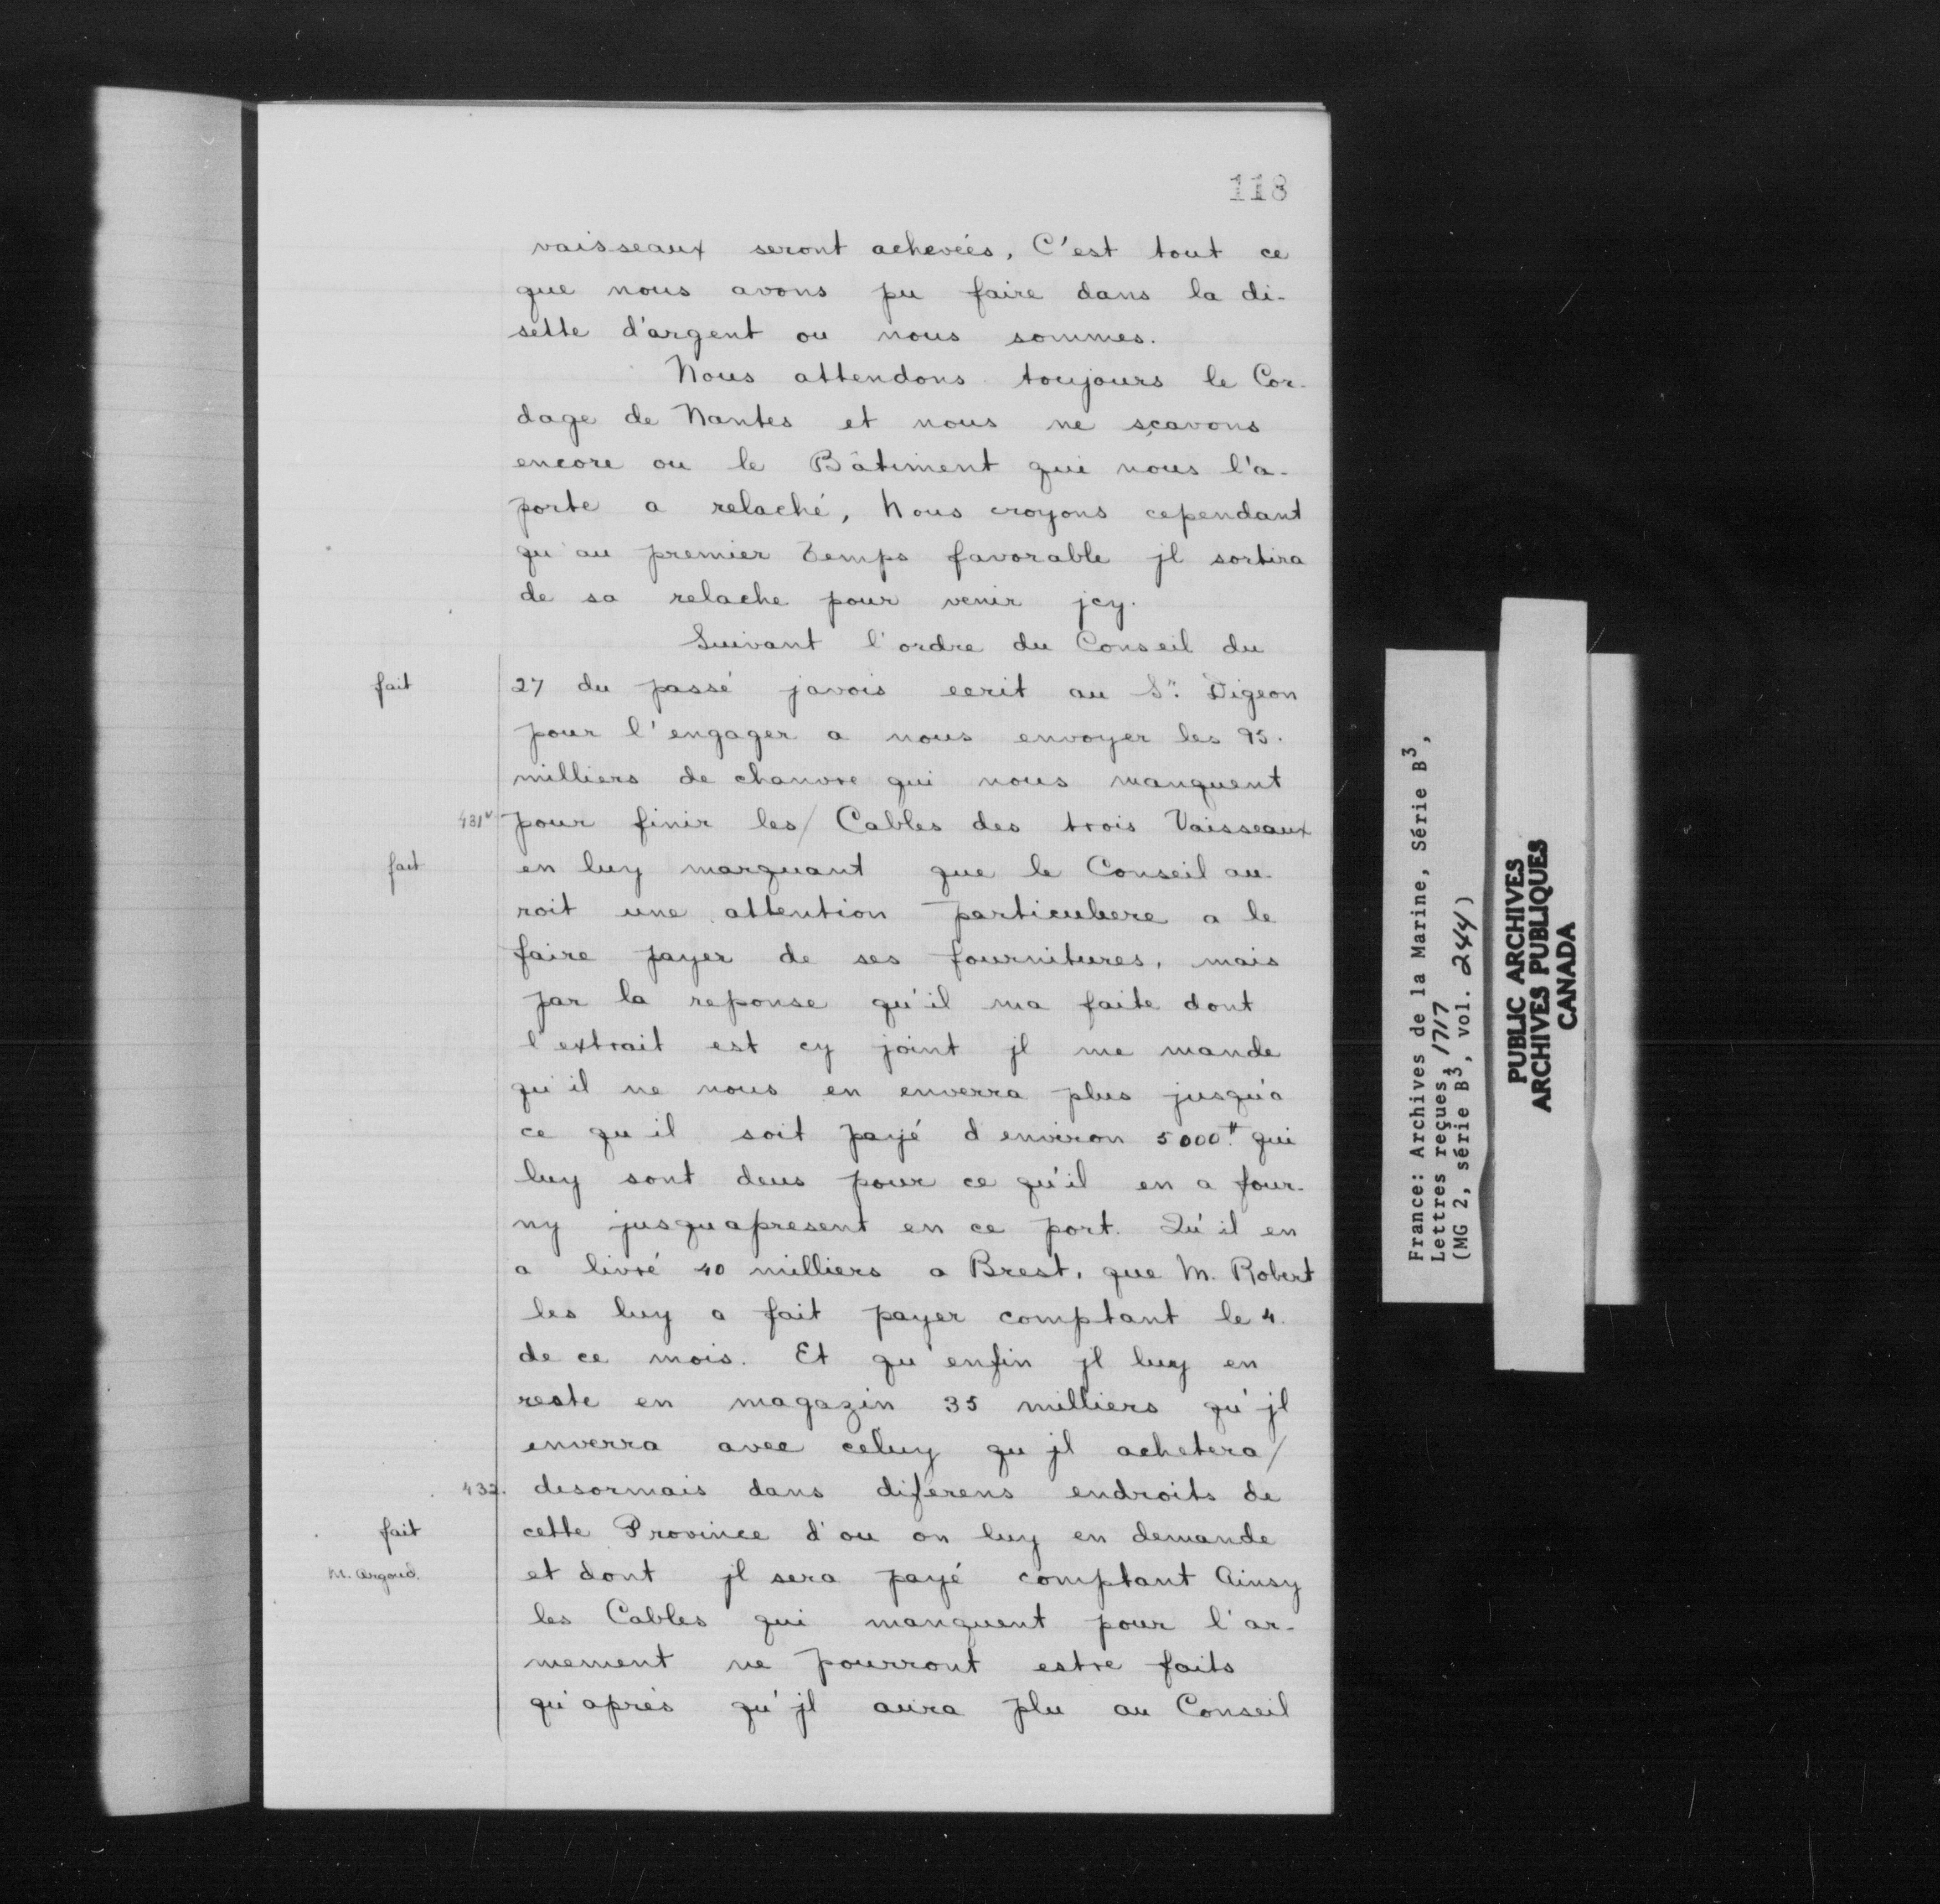 118
vaisseaux seront achevées, C'est tout ce
que nous avons pu faire dans la di-
sette d'argent ou nous sommes.
Nous attendons toujours le Cor-
dage de Nantes et nous ne sçavons
encore ou le Bâtiment qui nous l'a-
porte a relaché, Nous croyons cependant
qu'au premier temps favorable jl sortira
de sa relache pour venir jcy.
Suivant l'ordre du Conseil du
fait 27 du passé javois ecrit au Sr. Digeon
pour l'engager a nous envoyer les 95.
milliers de chanvre qui nous manquent
431v pour finir les/ Cables des trois Vaisseaux
fait en luy marquant que le Conseil au-
roit une attention particuliere a le
faire payer de ses fournitures, mais
par la reponse qu'il ma faite dont
l'extrait est cy joint jl me mande
qu'il ne nous en enverra plus jusqu'a
ce qu'il soit payé d'environ 5000# qui
luy sont deus pour ce qu'il en a four-
ny jusquapresent en ce port. Qu'il en
a livré 40 milliers a Brest, que M. Robert
les luy a fait payer comptant le 4.
de ce mois. Et qu'enfin jl luy en
reste en magazin 35 milliers qu'jl
enverra avec celuy qu jl achetera/
432. desormais dans diferens endroits de
fait cette Province d'ou on luy en demande
M. Argoud. et dont jl sera payé comptant Ainsy
les Cables qui manquent pour l'ar-
mement ne pourront estre faits
qu'aprés qu'jl aura plu au Conseil
France: Archives de la Marine, Série B3,
Lettres reçues, 1717
(MG 2, série B3, vol. 244)
PUBLIC ARCHIVES
ARCHIVES PUBLIQUES
CANADA